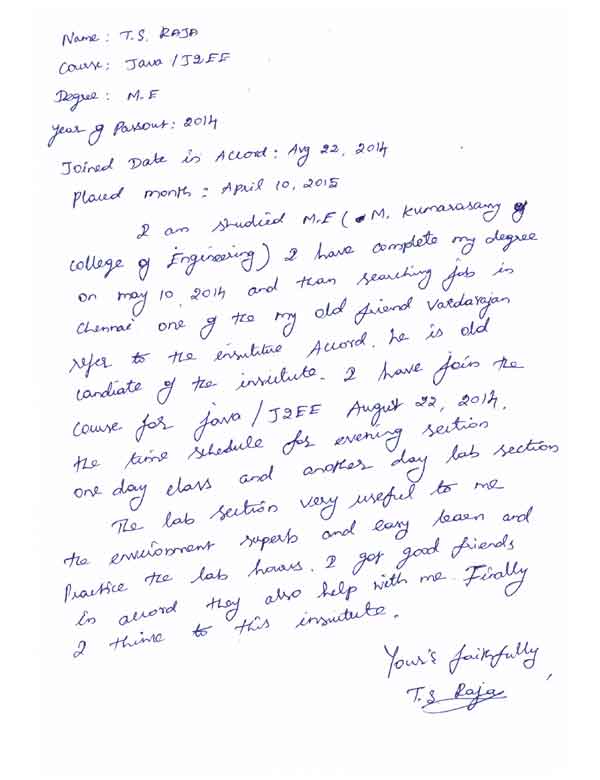 Name : T.S. RAJA
Course: Java / J2EE
Degree : M.E
Year of Passout: 2014
Joined Date in Accord : Aug 22, 2014
Placed month : April 10, 2015
I am studied M.E ( M. Kumarasamy
college of Engineering) I have complete my degree
on may 10, 2014 and than searching job in
Chennai one of the my old friend Vardarajan
refer to the insititue Accord. he is old
candiate of the insitute. I have join the
course for java / J2EE August 22, 2014.
the time schedule for evening section
one day class and another day lab section
The lab section very useful to me
the environment superb and easy learn and
Practice the lab hours. I got good friends
in accord they also help with me. Finally
I think to this insitute.
Your's faithfully
T.S Raja